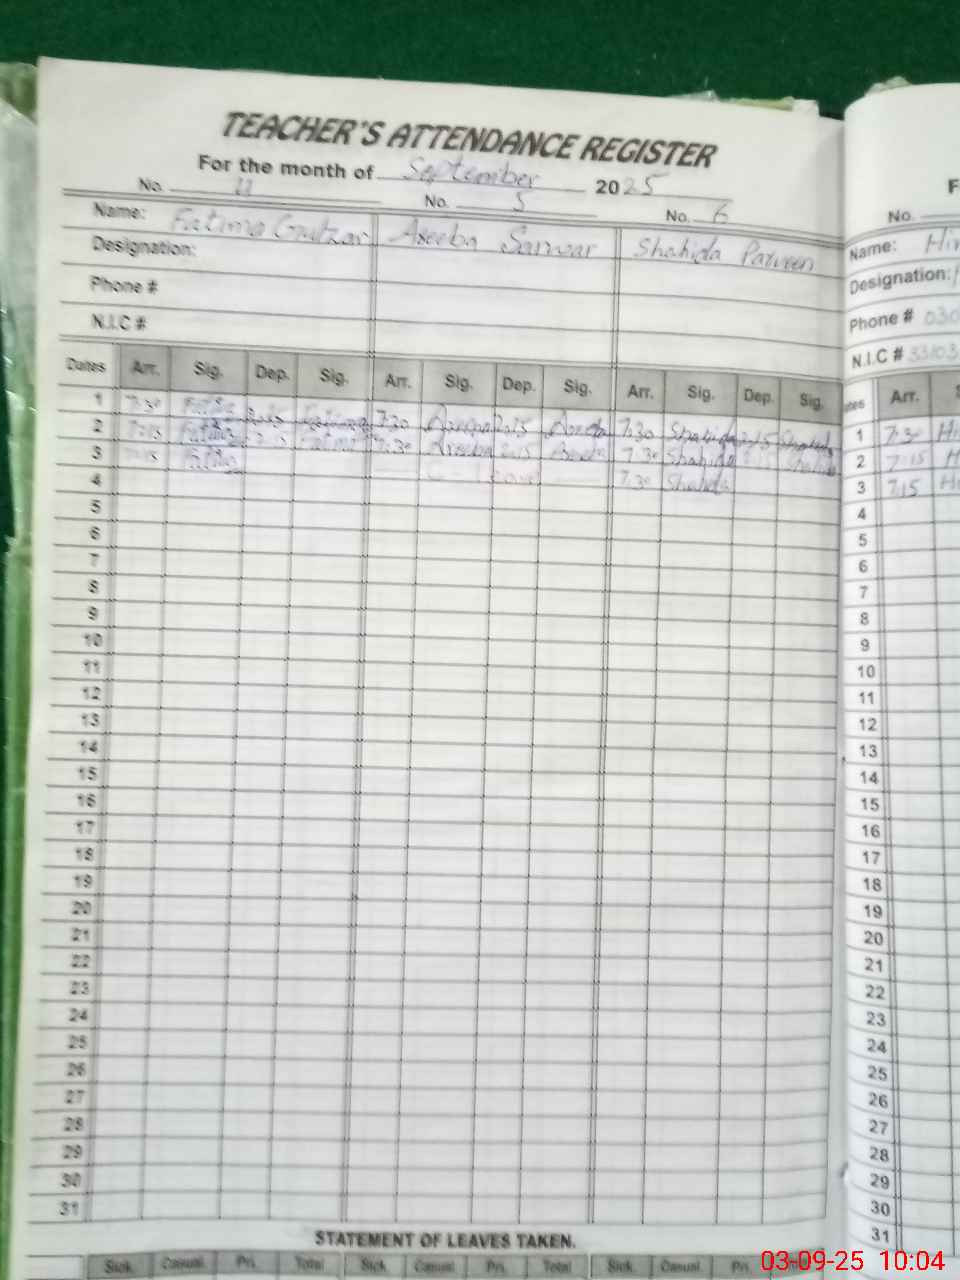 TEACHER'S ATTENDANCE REGISTER
For the month of September 2025
No. 11 No. 5 No. 6
Name: Fatima Gulzar Areeba Sarwar Shahida Parveen
Designation:
Phone #
N.I.C #
Dates Arr. Sig. Dep. Sig. Arr. Sig. Dep. Sig. Arr. Sig. Dep. Sig.
1 7:30 Fatima 2:15 Fatima 7:30 Areeba 2:15 Areeba 7:30 Shahida 2:15 Shahida
2 7:15 Fatima 2:15 Fatima 7:30 Areeba 2:15 Areeba 7:30 Shahida 2:15 Shahida
3 7:15 Fatima Leave 7:30 Shahida
4
5
6
7
8
9
10
11
12
13
14
15
16
17
18
19
20
21
22
23
24
25
26
27
28
29
30
31
STATEMENT OF LEAVES TAKEN.
Sick. Casual. Pri. Total Sick. Casual. Pri. Total Sick. Casual. Pri. Total
No.
Name:
Designation:
Phone # 030
N.I.C # 33103
Arr.
1 7:30
2 7:15
3 7:15
4
5
6
7
8
9
10
11
12
13
14
15
16
17
18
19
20
21
22
23
24
25
26
27
28
29
30
31
03-09-25 10:04